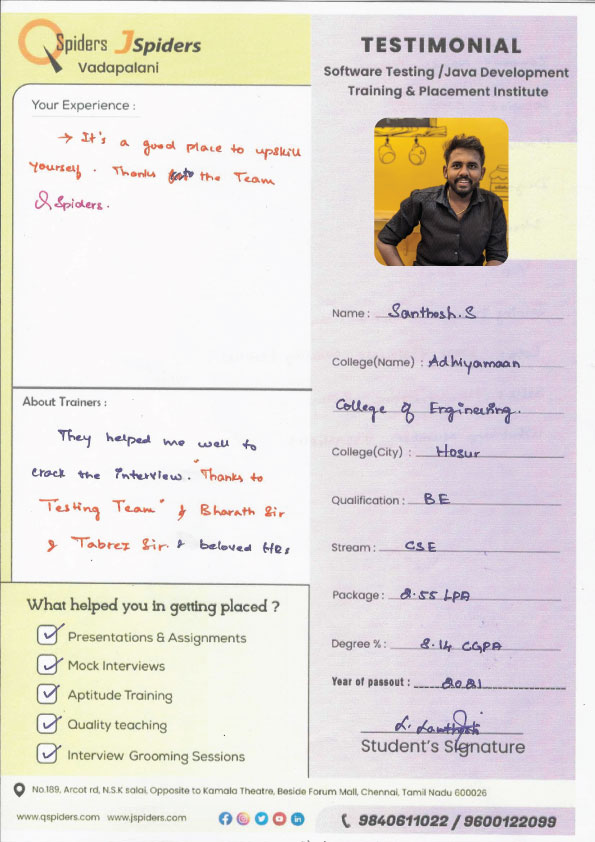 QSpiders JSpiders
Vadapalani
Your Experience :
→ It's a good place to upskill
yourself. Thanks to the Team
QSpiders.
About Trainers :
They helped me well to
crack the interview. "Thanks to
Testing Team" & Bharath Sir
& Tabrez Sir. & beloved HRs
What helped you in getting placed ?
Presentations & Assignments
Mock Interviews
Aptitude Training
Quality teaching
Interview Grooming Sessions
TESTIMONIAL
Software Testing /Java Development
Training & Placement Institute
Name : Santhosh.S
College(Name) : Adhiyamaan
College of Engineering.
College(City) : Hosur
Qualification : BE
Stream : CSE
Package : 2.55 LPA
Degree % : 8.14 CGPA
Year of passout : 2021
Student's Signature
No.189, Arcot rd, N.S.K salai, Opposite to Kamala Theatre, Beside Forum Mall, Chennai, Tamil Nadu 600026
www.qspiders.com www.jspiders.com
9840611022 / 9600122099